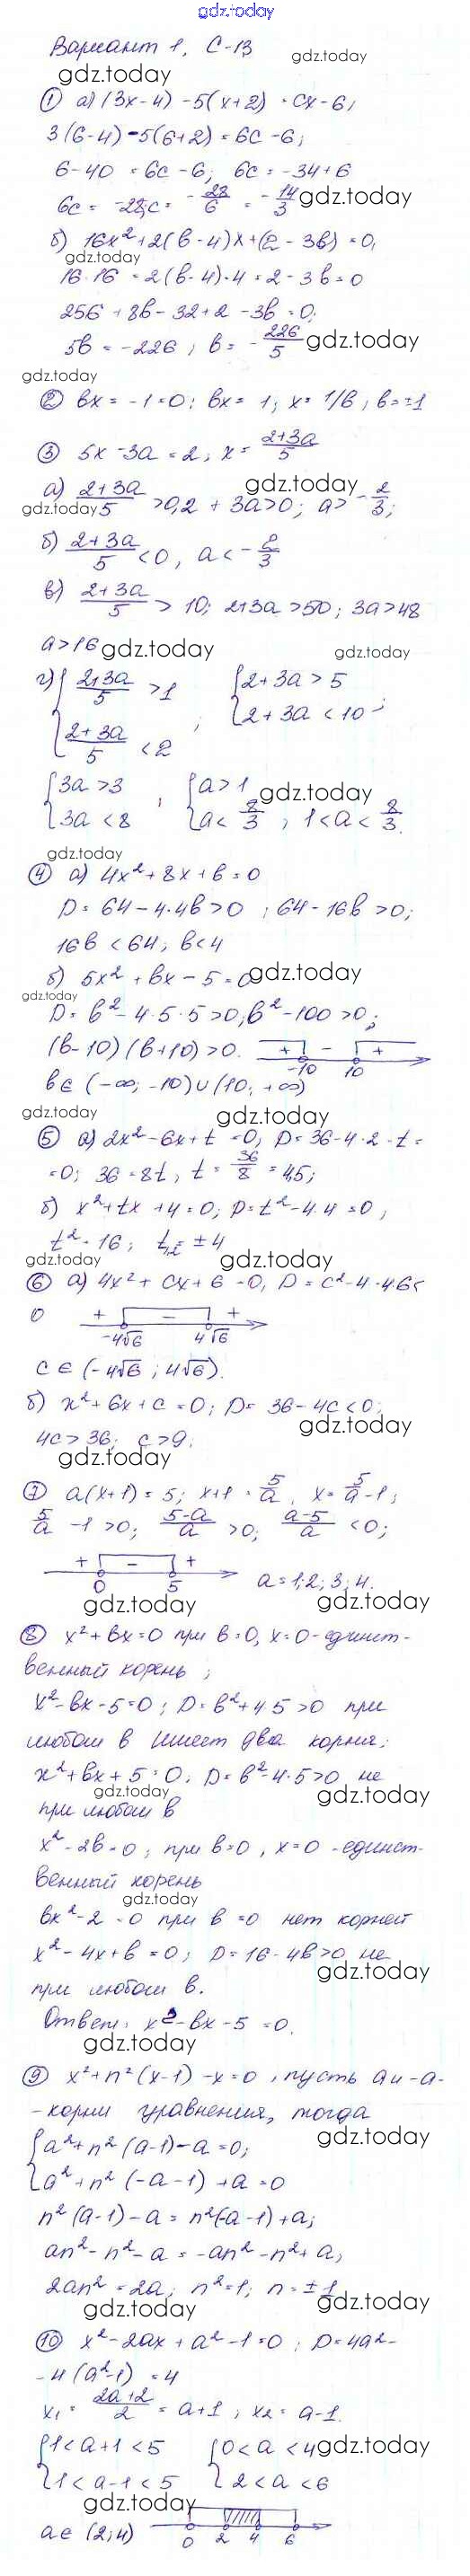 gdz.today
Вариант 1, С-13
gdz.today
gdz.today
① а) (3x-4) -5(x+2) = cx-6;
3(6-4) -5(6+2) = 6c -6;
6-40 = 6c -6; 6c = -34+6
6c = -28; c = -28/6 = -14/3
gdz.today
б) 16x²+2(b-4)x+(2-3b)=0,
gdz.today
16·16 = 2(b-4)·4 = 2-3b=0
256 + 8b - 32+2 -3b = 0;
5b = -226; b = -226/5
gdz.today
gdz.today
② bx = -1=0; bx = 1; x = 1/b; b = ±1
③ 5x -3a = 2, x = (2+3a)/5
gdz.today
а) (2+3a)/5 >0,2 + 3a>0; a> -2/3;
gdz.today
б) (2+3a)/5 <0, a< -2/3
в) (2+3a)/5 > 10; 2+3a >50; 3a>48
a>16
gdz.today
gdz.today
г) { (2+3a)/5 >1 ; { 2+3a > 5
{ (2+3a)/5 <2 { 2+3a <10 ;
{ 3a >3 ; { a>1
gdz.today
{ 3a <8 { a< 8/3 , 1<a< 8/3.
gdz.today
④ а) 4x²+8x+b=0
D = 64-4·4b>0; 64-16b >0;
16b <64; b<4
б) 5x² +bx -5=0
gdz.today
gdz.today
D = b²-4·5·5>0; b²-100 >0;
(b-10)(b+10)>0. + - +
-10 10
b∈ (-∞; -10)∪(10; +∞)
gdz.today
gdz.today
⑤ а) 2x²-6x+t =0; D=36-4·2·t=
=0; 36=8t, t = 36/8 = 4,5;
б) x²+tx+4=0; D=t²-4·4=0;
t²=16; t₁,₂= ±4
gdz.today
gdz.today
⑥ а) 4x²+cx+6=0, D=c²-4·4·6<
0 + - +
-4√6 4√6
c∈(-4√6; 4√6).
б) x²+6x+c=0; D=36-4c<0;
gdz.today
4c>36; c>9;
gdz.today
⑦ a(x+1)=5; x+1= 5/a, x= 5/a -1;
5/a -1 >0; (5-a)/a >0; (a-5)/a <0;
+ - +
0 5 a=1;2;3;4.
gdz.today
gdz.today
⑧ x²+bx=0 при b=0, x=0-единст-
венный корень;
x²-bx-5=0; D=b²+4·5>0 при
любом b имеет два корня;
x²+bx+5=0; D=b²-4·5>0 не
gdz.today
gdz.today
при любом b
x²-2b=0; при b=0, x=0 -единст-
венный корень
gdz.today
bx²-2=0 при b=0 нет корней
x²-4x+b=0; D=16-4b>0 не
gdz.today
при любом b.
Ответ: x²-bx-5=0.
gdz.today
⑨ x²+n²(x-1)-x=0, пусть a и -a-
-корни уравнения, тогда
gdz.today
{ a²+n²(a-1)-a=0;
{ a²+n²(-a-1)+a=0
n²(a-1)-a = n²(-a-1)+a;
an²-n²-a = -an²-n²+a;
2an²=2a; n²=1; n=±1
gdz.today
gdz.today
⑩ x²-2ax+a²-1=0; D=4a²-
-4(a²-1) =4
x₁= (2a+2)/2 = a+1, x₂= a-1.
{ 1<a+1<5 { 0<a<4
gdz.today
{ 1<a-1<5 { 2<a<6
gdz.today
a∈ (2;4) 0 2 4 6